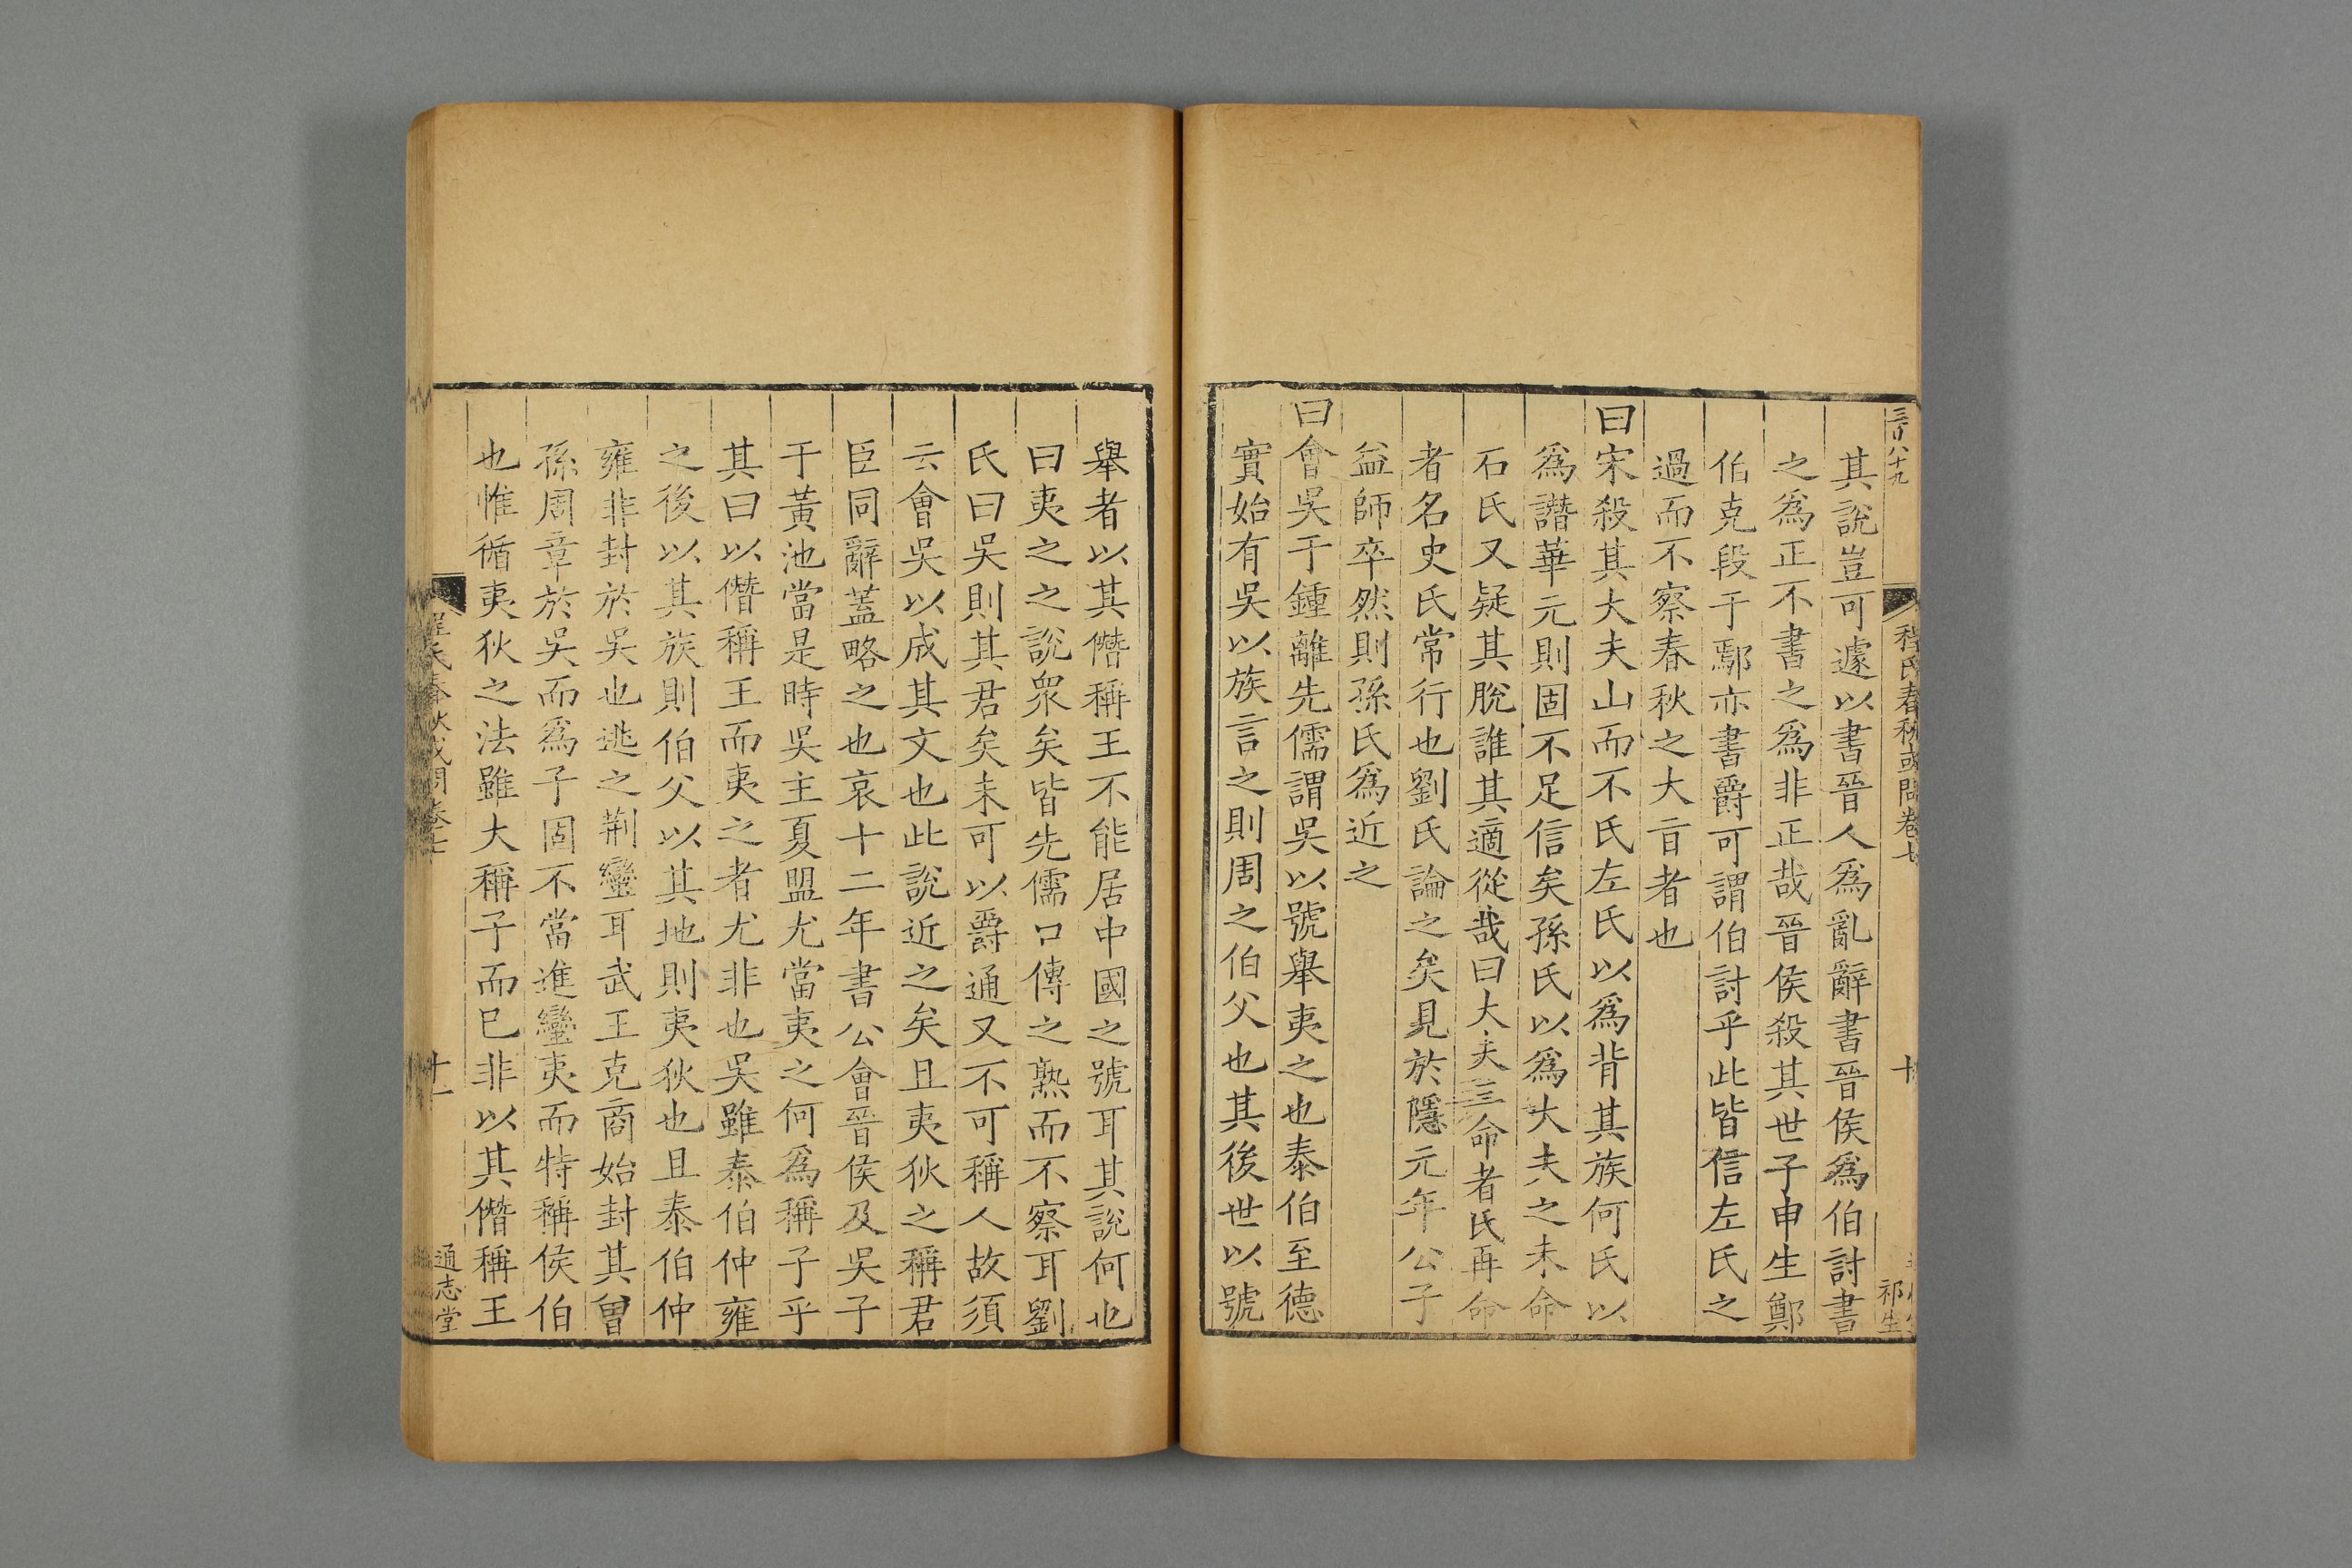 三百八十九
程氏春秋或問卷七
十
祁生
其說豈可遽以書晉人爲亂辭書晉侯爲伯討書
之爲正不書之爲非正哉晉侯殺其世子申生鄭
伯克段于鄢亦書爵可謂伯討乎此皆信左氏之
過而不察春秋之大㫖者也
曰宋殺其大夫山而不氏左氏以爲背其族何氏以
爲譖華元則固不足信矣孫氏以爲大夫之未命
石氏又疑其脫誰其適從哉曰大夫三命者氏再命
者名史氏常行也劉氏論之矣見於隱元年公子
益師卒然則孫氏爲近之
曰會吳于鍾離先儒謂吳以號舉夷之也泰伯至德
實始有吳以族言之則周之伯父也其後世以號
舉者以其僭稱王不能居中國之號耳其說何也
曰夷之之說衆矣皆先儒口傳之熟而不察耳劉
氏曰吳則其君矣未可以爵通又不可稱人故須
云會吳以成其文也此說近之矣且夷狄之稱君
臣同辭蓋略之也哀十二年書公會晉侯及吳子
于黃池當是時吳主夏盟尤當夷之何爲稱子乎
其曰以僭稱王而夷之者尤非也吳雖泰伯仲雍
之後以其族則伯父以其地則夷狄也且泰伯仲
雍非封於吳也逃之荆蠻耳武王克商始封其曾
孫周章於吳而爲子固不當進蠻夷而特稱侯伯
也惟循夷狄之法雖大稱子而已非以其僭稱王
程氏春秋或問卷七
十一
通志堂